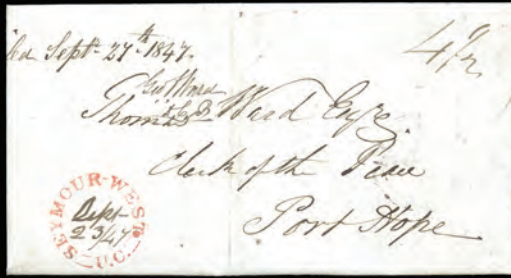 Sept. 27th 1847.
4½
Geo Ward
Thomas Ward Esqre.
Clerk of the Peace
Port Hope
SEYMOUR-WEST
Sept
23/47
U.C.